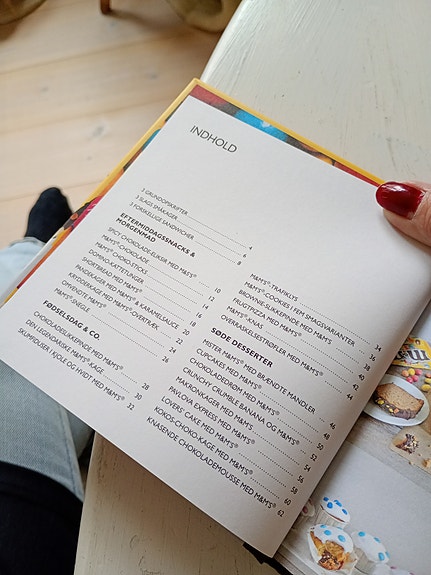 INDHOLD
3 GRUNDOPSKRIFTER 4
3 SLAGS SMÅKAGER 6
3 FORSKELLIGE SANDWICHER 8
EFTERMIDDAGSSNACKS &
MORGENMAD
SPICY CHOKOLADE-ELIKSIR MED M&M'S® 10
M&M'S®-CHOKOLADE 12
M&M'S® CHOKO-STICKS 14
DOMINO-KATTETUNGER 16
SHORTBREAD MED M&M'S® 18
PANDEKAGER MED M&M'S® & KARAMELSAUCE 20
KRYDDERKAGE MED M&M'S®-OVERTRÆK 22
OMVENDTE M&M'S® 24
M&M'S®-SNEGLE 26
FØDSELSDAG & CO.
CHOKOLADELIKKEPINDE MED M&M'S® 28
DEN LEGENDARISKE M&M'S®-KAGE 30
SKUMFIDUSER I KJOLE OG HVIDT MED M&M'S® 32
M&M'S®-TRAPKLYS 34
M&M'S®-COOKIES I FEM SMAGSVARIANTER 36
BROWNIE-SLIKKEPINDE MED M&M'S 38
FRUGTPIZZA MED M&M'S® 40
M&M'S®-KNAS 42
OVERRASKELSESTRØFLER MED M&M'S® 44
SØDE DESSERTER
MISTER M&M'S® MED BRÆNDTE MANDLER 46
CUPCAKES MED M&M'S® 48
CHOKOLADEDRØM MED M&M'S® 50
CRUNCHY CRUMBLE BANANA OG M&M'S® 52
MAKRONKAGER MED M&M'S® 54
PAVLOVA EXPRESS MED M&M'S® 56
LOVERS' CAKE MED M&M'S® 58
KOKOS-CHOKO-KAGE MED M&M'S® 60
KNASENDE CHOKOLADEMOUSSE MED M&M'S® 62